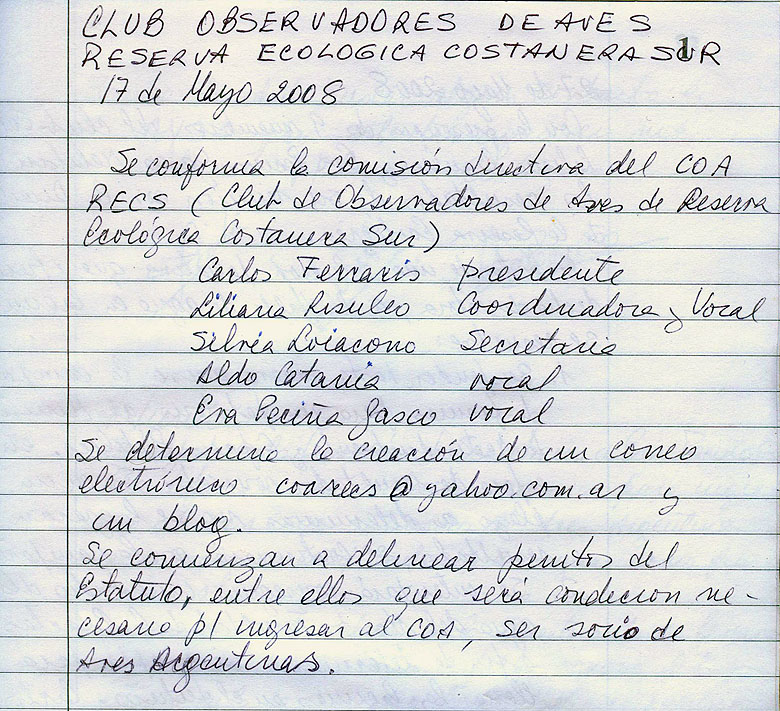 CLUB OBSERVADORES DE AVES
RESERVA ECOLOGICA COSTANERA SUR
1
17 de Mayo 2008
Se conforma la comisión directiva del COA
RECS (Club de Observadores de Aves de Reserva
Ecológica Costanera Sur)
Carlos Ferraris presidente
Liliana Risuleo Coordinadora y Vocal
Silvia Loiacono Secretaria
Aldo Catania vocal
Eva Peciña Gasco vocal
Se determina la creación de un correo
electrónico coarecs@yahoo.com.ar y
un blog.
Se comienzan a delinear puntos del
Estatuto, entre ellos que será condicion ne-
cesario p/ ingresar al COA, ser socio de
Aves Argentinas.